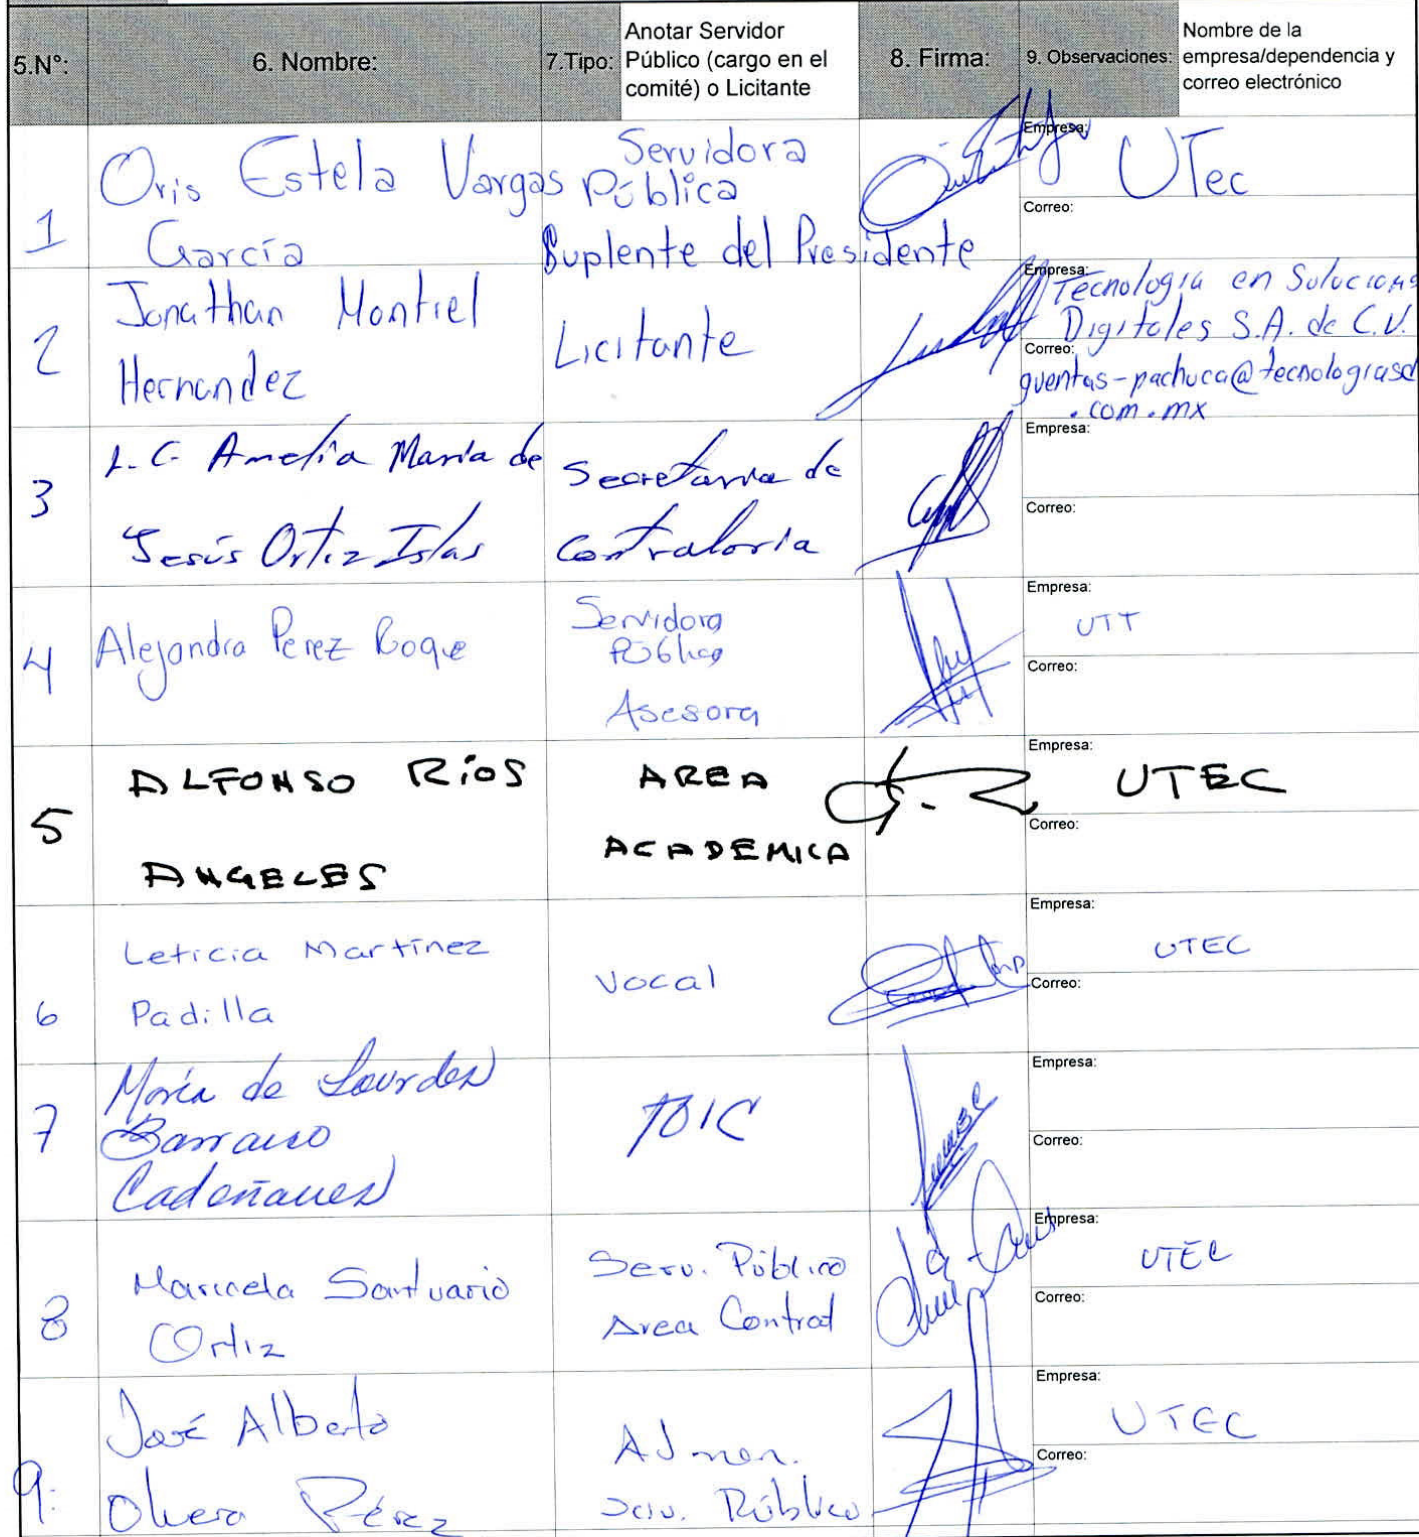 5.N°:
6. Nombre:
7.Tipo:
Anotar Servidor
Público (cargo en el
comité) o Licitante
8. Firma:
9. Observaciones:
Nombre de la
empresa/dependencia y
correo electrónico
1
Oris Estela Vargas
García
Servidora
Pública
Suplente del Presidente
Empresa:
UTec
Correo:
2
Jonathan Montiel
Hernandez
Licitante
Empresa:
Tecnologia en Soluciones
Digitales S.A. de C.V.
Correo:
gventas-pachuca@tecnologiasd
.com.mx
3
L.C. Amelia María de
Jesús Ortiz Islas
Secretaria de
Contraloria
Empresa:
Correo:
4
Alejandra Perez Roque
Servidora
Pública
Asesora
Empresa:
UTT
Correo:
5
ALFONSO RíOS
ANGELES
AREA
ACADEMICA
Empresa:
UTEC
Correo:
6
Leticia Martínez
Padilla
Vocal
Empresa:
UTEC
Correo:
7
María de Lourdes
Cadeñanes
TOIC
Empresa:
Correo:
8
Maricela Santuario
Ortiz
Serv. Público
Area Contrat
Empresa:
UTEC
Correo:
9.
José Alberto
Olvera Pérez
Admon.
Serv. Público
Empresa:
UTEC
Correo: